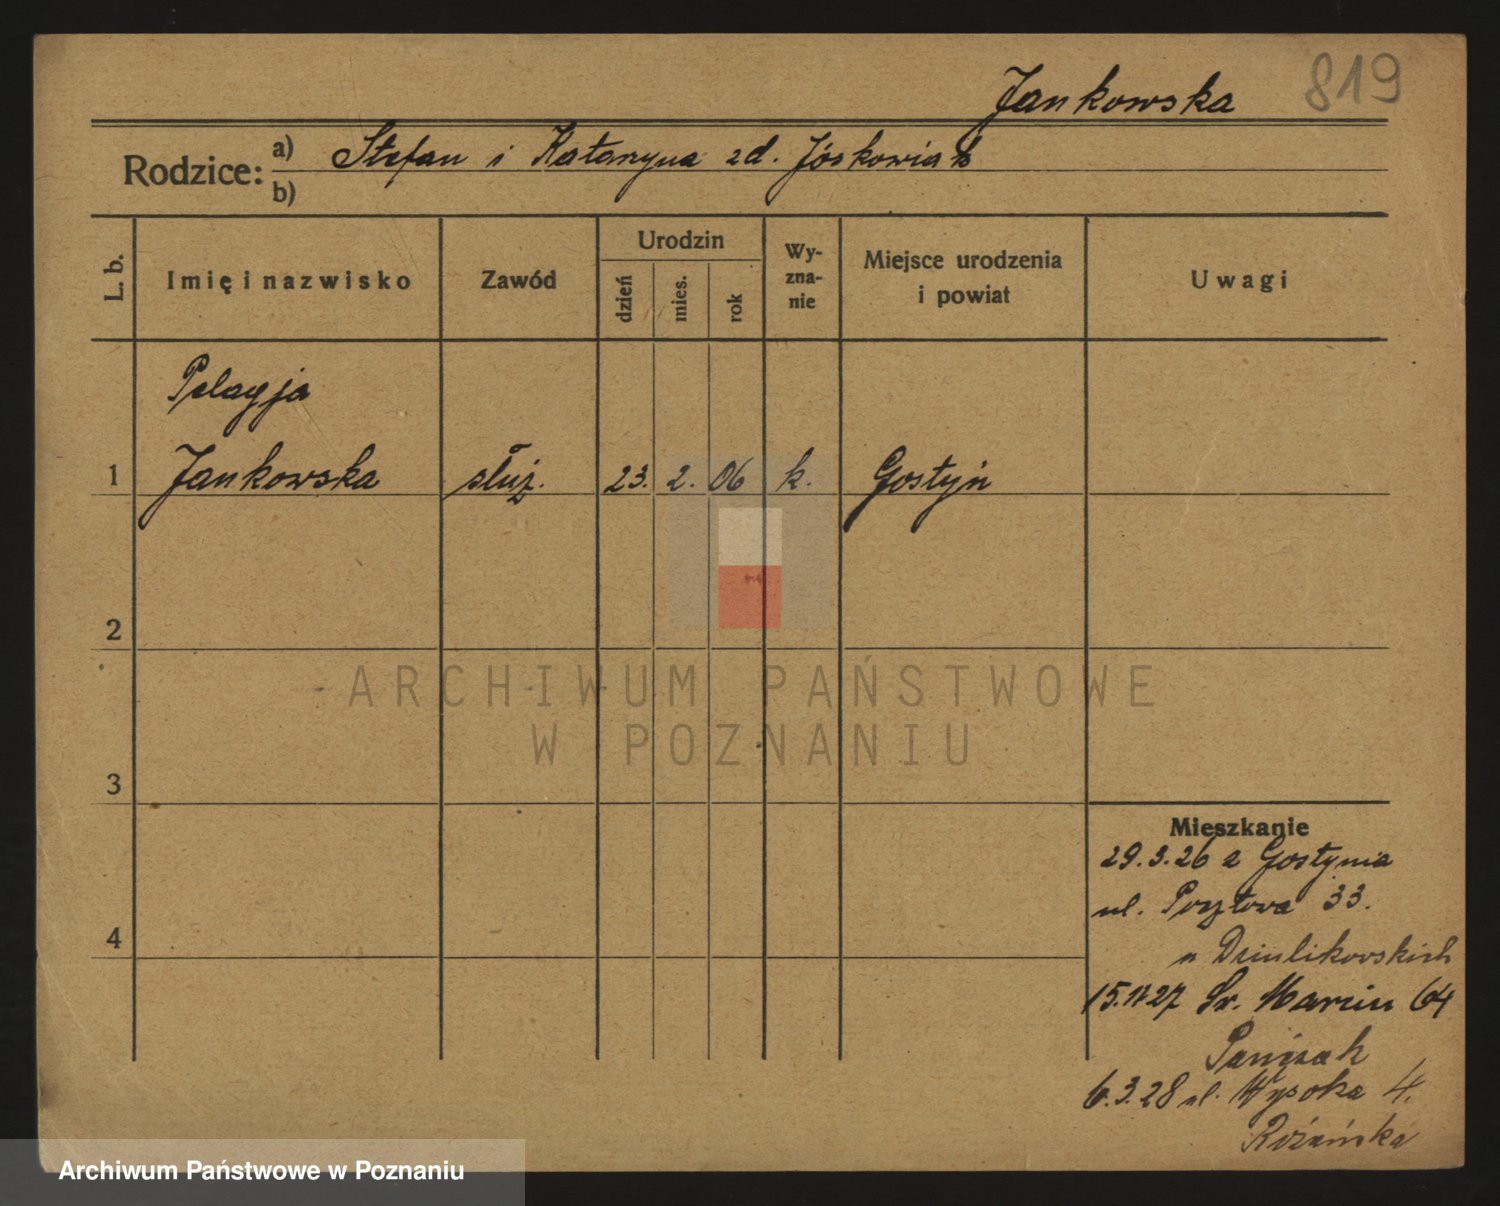 Jankowska 819
Rodzice: a) Stefan i Katarzyna zd. Jóskowiak
b)
L. b. Imię i nazwisko Zawód Urodzin dzień mies. rok Wy-zna-nie Miejsce urodzenia i powiat Uwagi
Pelagja
1 Jankowska służ. 23. 2. 06 k. Gostyń
2
ARCHIWUM PAŃSTWOWE
W POZNANIU
3
Mieszkanie
29.3.26 z Gostynia
ul. Pocztowa 33.
4
u
15.11 27 Św. Marcin 64
6.3.28 ul. Wysoka 4.
Archiwum Państwowe w Poznaniu